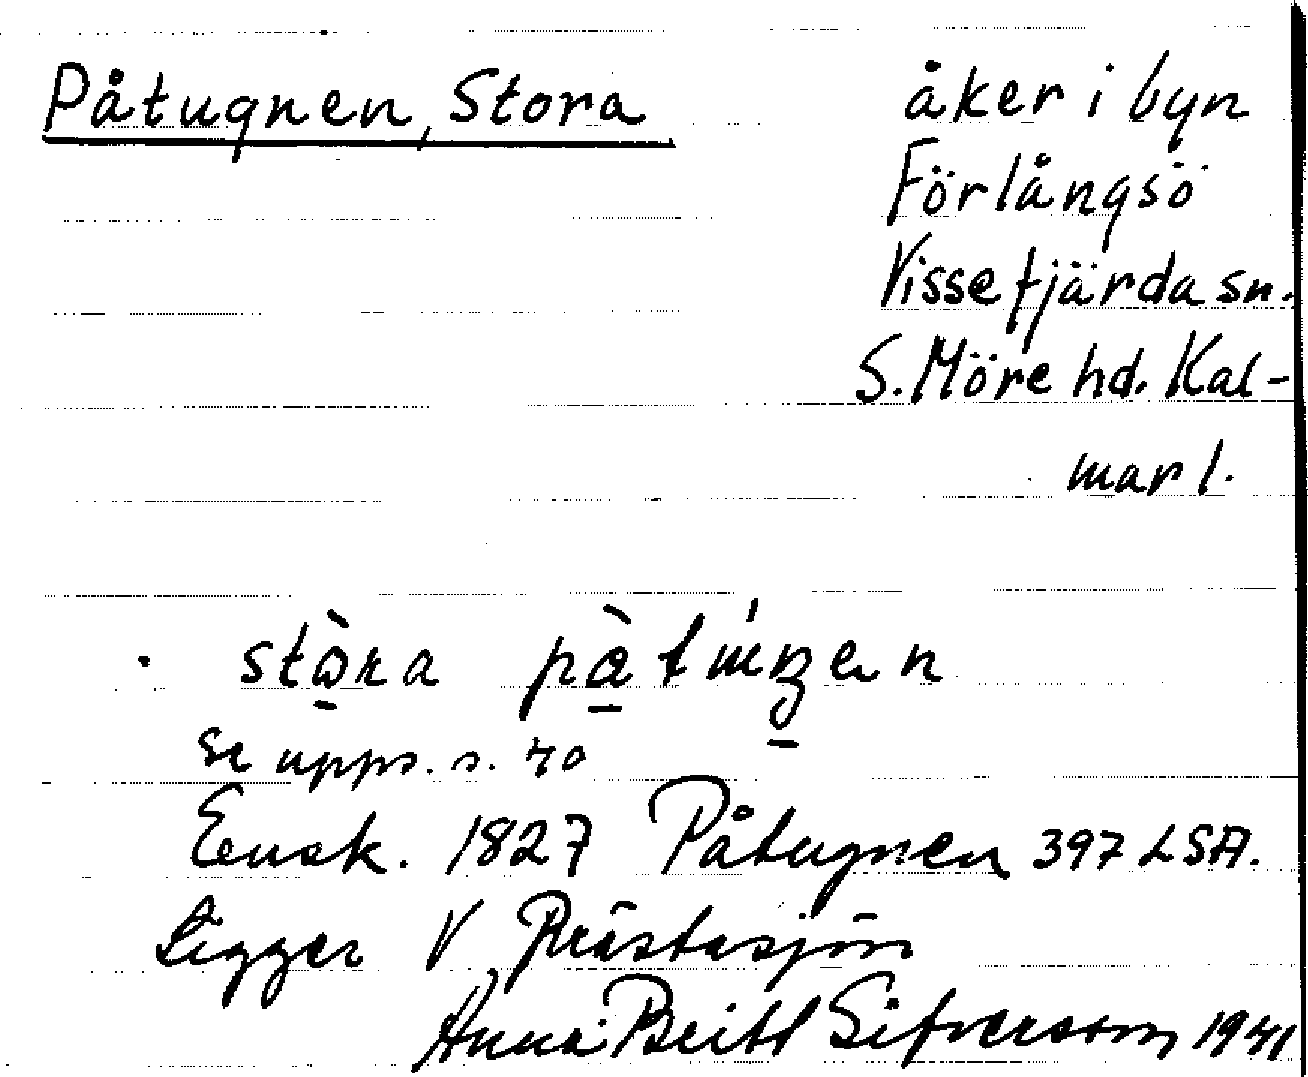 Påtugnen, Stora
åker i byn
Förlångsö
Vissefjärda sn.
S. Möre hd. Kal-
mar l.
Se upps. s. 70
Ensk. 1827 Påtugnen 397 LSA.
Ligger V Prästasjön
Anna Britt Sifversson 1941